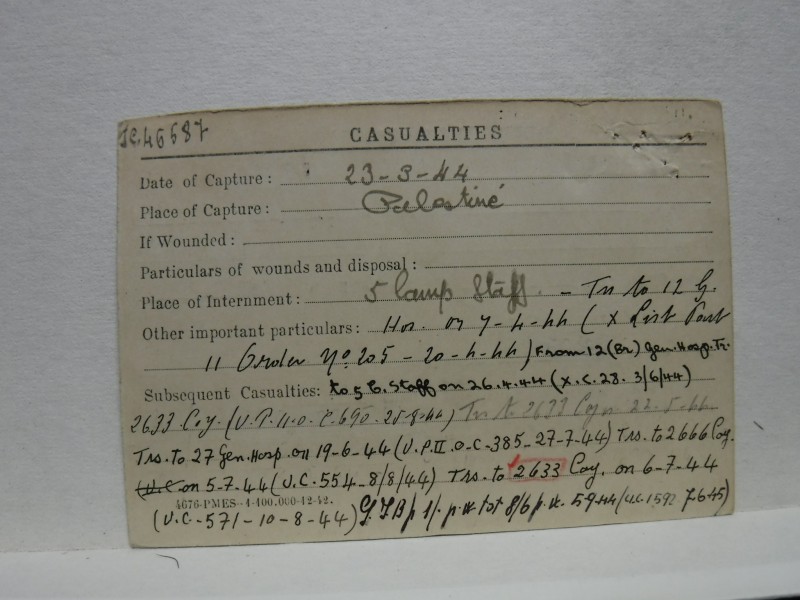 46687
CASUALTIES
Date of Capture: 23-3-44
Place of Capture: Palestine
If Wounded:
Particulars of wounds and disposal:
Place of Internment: 5 Camp Staff - Trs to 12 G.
Other important particulars: Hos. on 7-4-44 (X List Part
11 Order No 205 - 20-4-44) From 12 (Br) Gen. Hosp. Tr.
Subsequent Casualties: to 5 C. Staff on 26.4.44 (X.C.28. 3/6/44)
2633 Coy. 2633
Trs. to 27 Gen. Hosp. on 19-6-44 (U.P.II.O-C-385-27-7-44) Trs. to 2666 Coy.
on 5-7-44 (U.C.554-8/8/44) Trs. to 2633 Coy. on 6-7-44
4676-PMES-4-100.000-12-42.
(U.C-571-10-8-44)